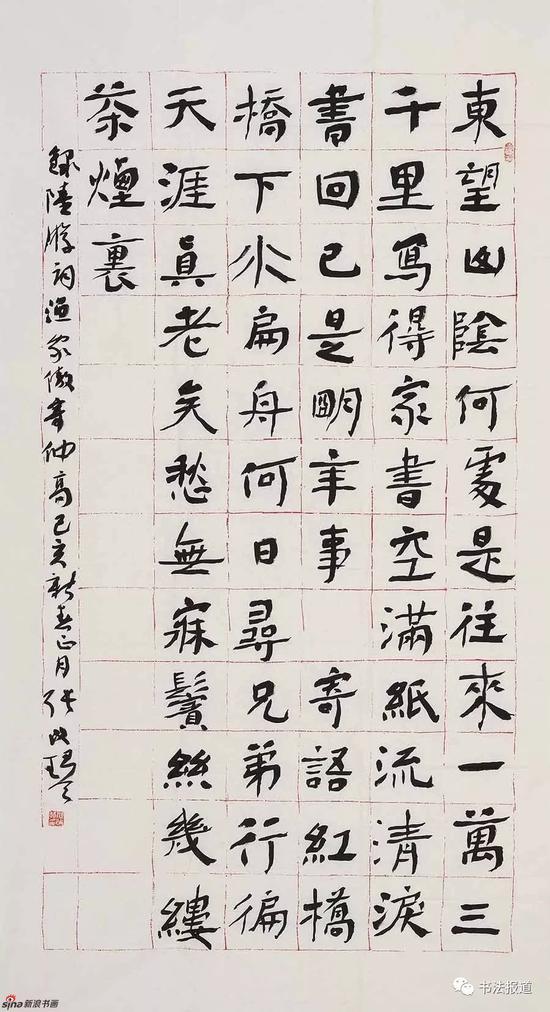 東望山陰何處是往來一萬三
千里寫得家書空滿紙流清淚
書回已是明年事 寄語紅橋
橋下水扁舟何日尋兄弟行徧
天涯眞老矣愁無寐鬢絲幾縷
茶煙裏
錄陸游詞漁家傲寄仲高己亥新春正月張改琴
sina新浪书画
书法报道